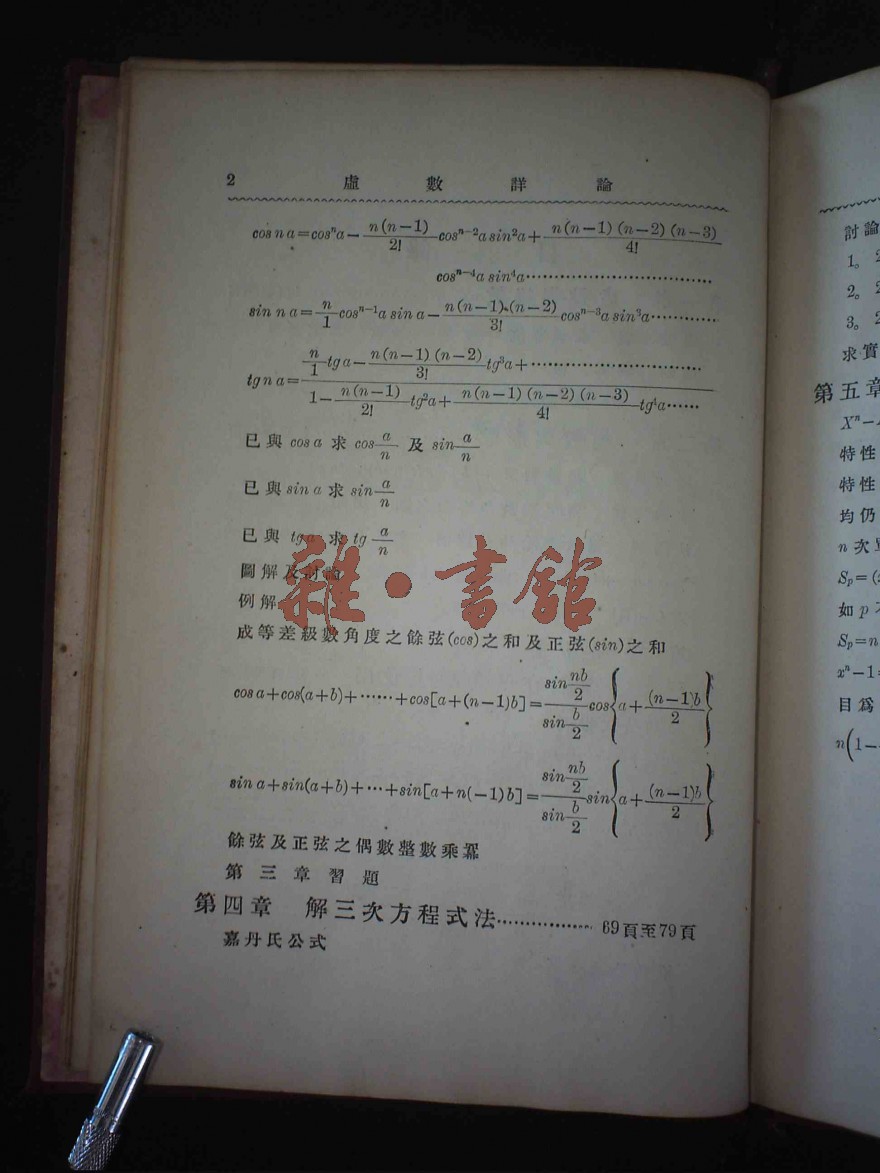 2 虛數詳論
cos n a=cosⁿa− n(n−1)/2! cosⁿ⁻²a sin²a+ n(n−1)(n−2)(n−3)/4!
cosⁿ⁻⁴a sin⁴a……………………
sin n a= n/1 cosⁿ⁻¹a sin a− n(n−1)(n−2)/3! cosⁿ⁻³a sin³a…………
tg n a= [n/1 tg a− n(n−1)(n−2)/3! tg³a+……………………] / [1− n(n−1)/2! tg²a+ n(n−1)(n−2)(n−3)/4! tg⁴a……]
已與 cos a 求 cos a/n 及 sin a/n
已與 sin a 求 sin a/n
已與 tg a 求 tg a/n
圖解及討論
例解
雜·書館
成等差級數角度之餘弦(cos)之和及正弦(sin)之和
cos a+cos(a+b)+……+cos[a+(n−1)b]= (sin nb/2)/(sin b/2) cos{a+ (n−1)b/2}
sin a+sin(a+b)+…+sin[a+n(−1)b]= (sin nb/2)/(sin b/2) sin{a+ (n−1)b/2}
餘弦及正弦之偶數整數乘冪
第三章習題
第四章 解三次方程式法…………… 69頁至79頁
嘉丹氏公式
討論
1。
2。
3。
求實
第五章
Xⁿ−
特性
特性
均仍
n次
Sp=(
如p
Sp=n
xⁿ−1=
目為
n(1−